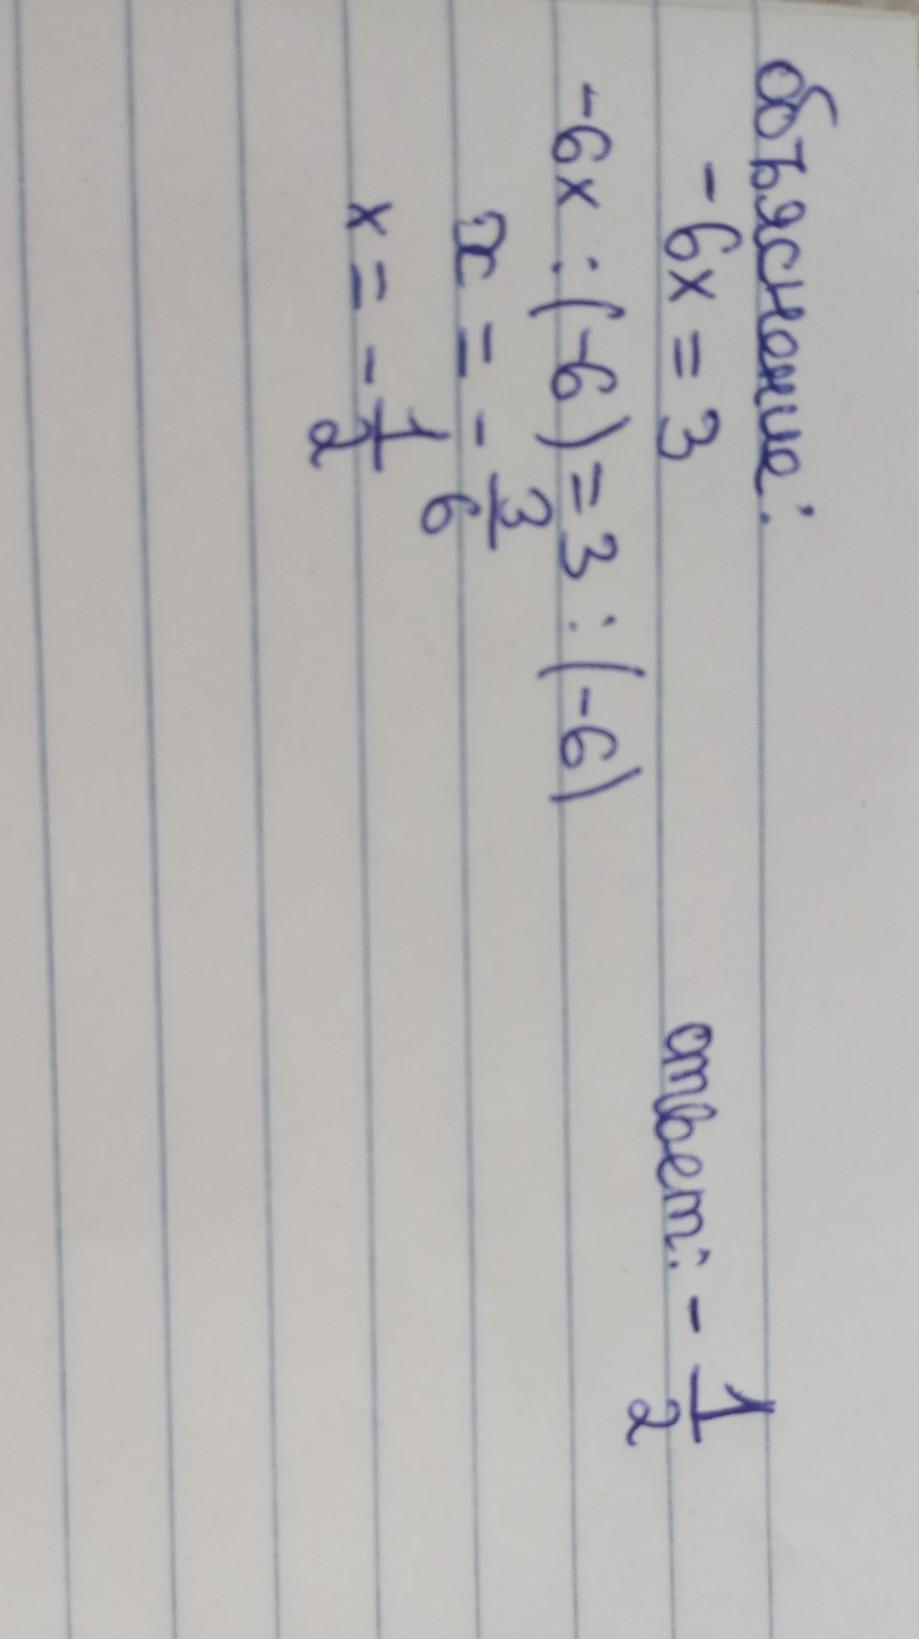 объяснение:
-6x = 3
ответ: - 1/2
-6x : (-6) = 3 : (-6)
x = - 3/6
x = - 1/2